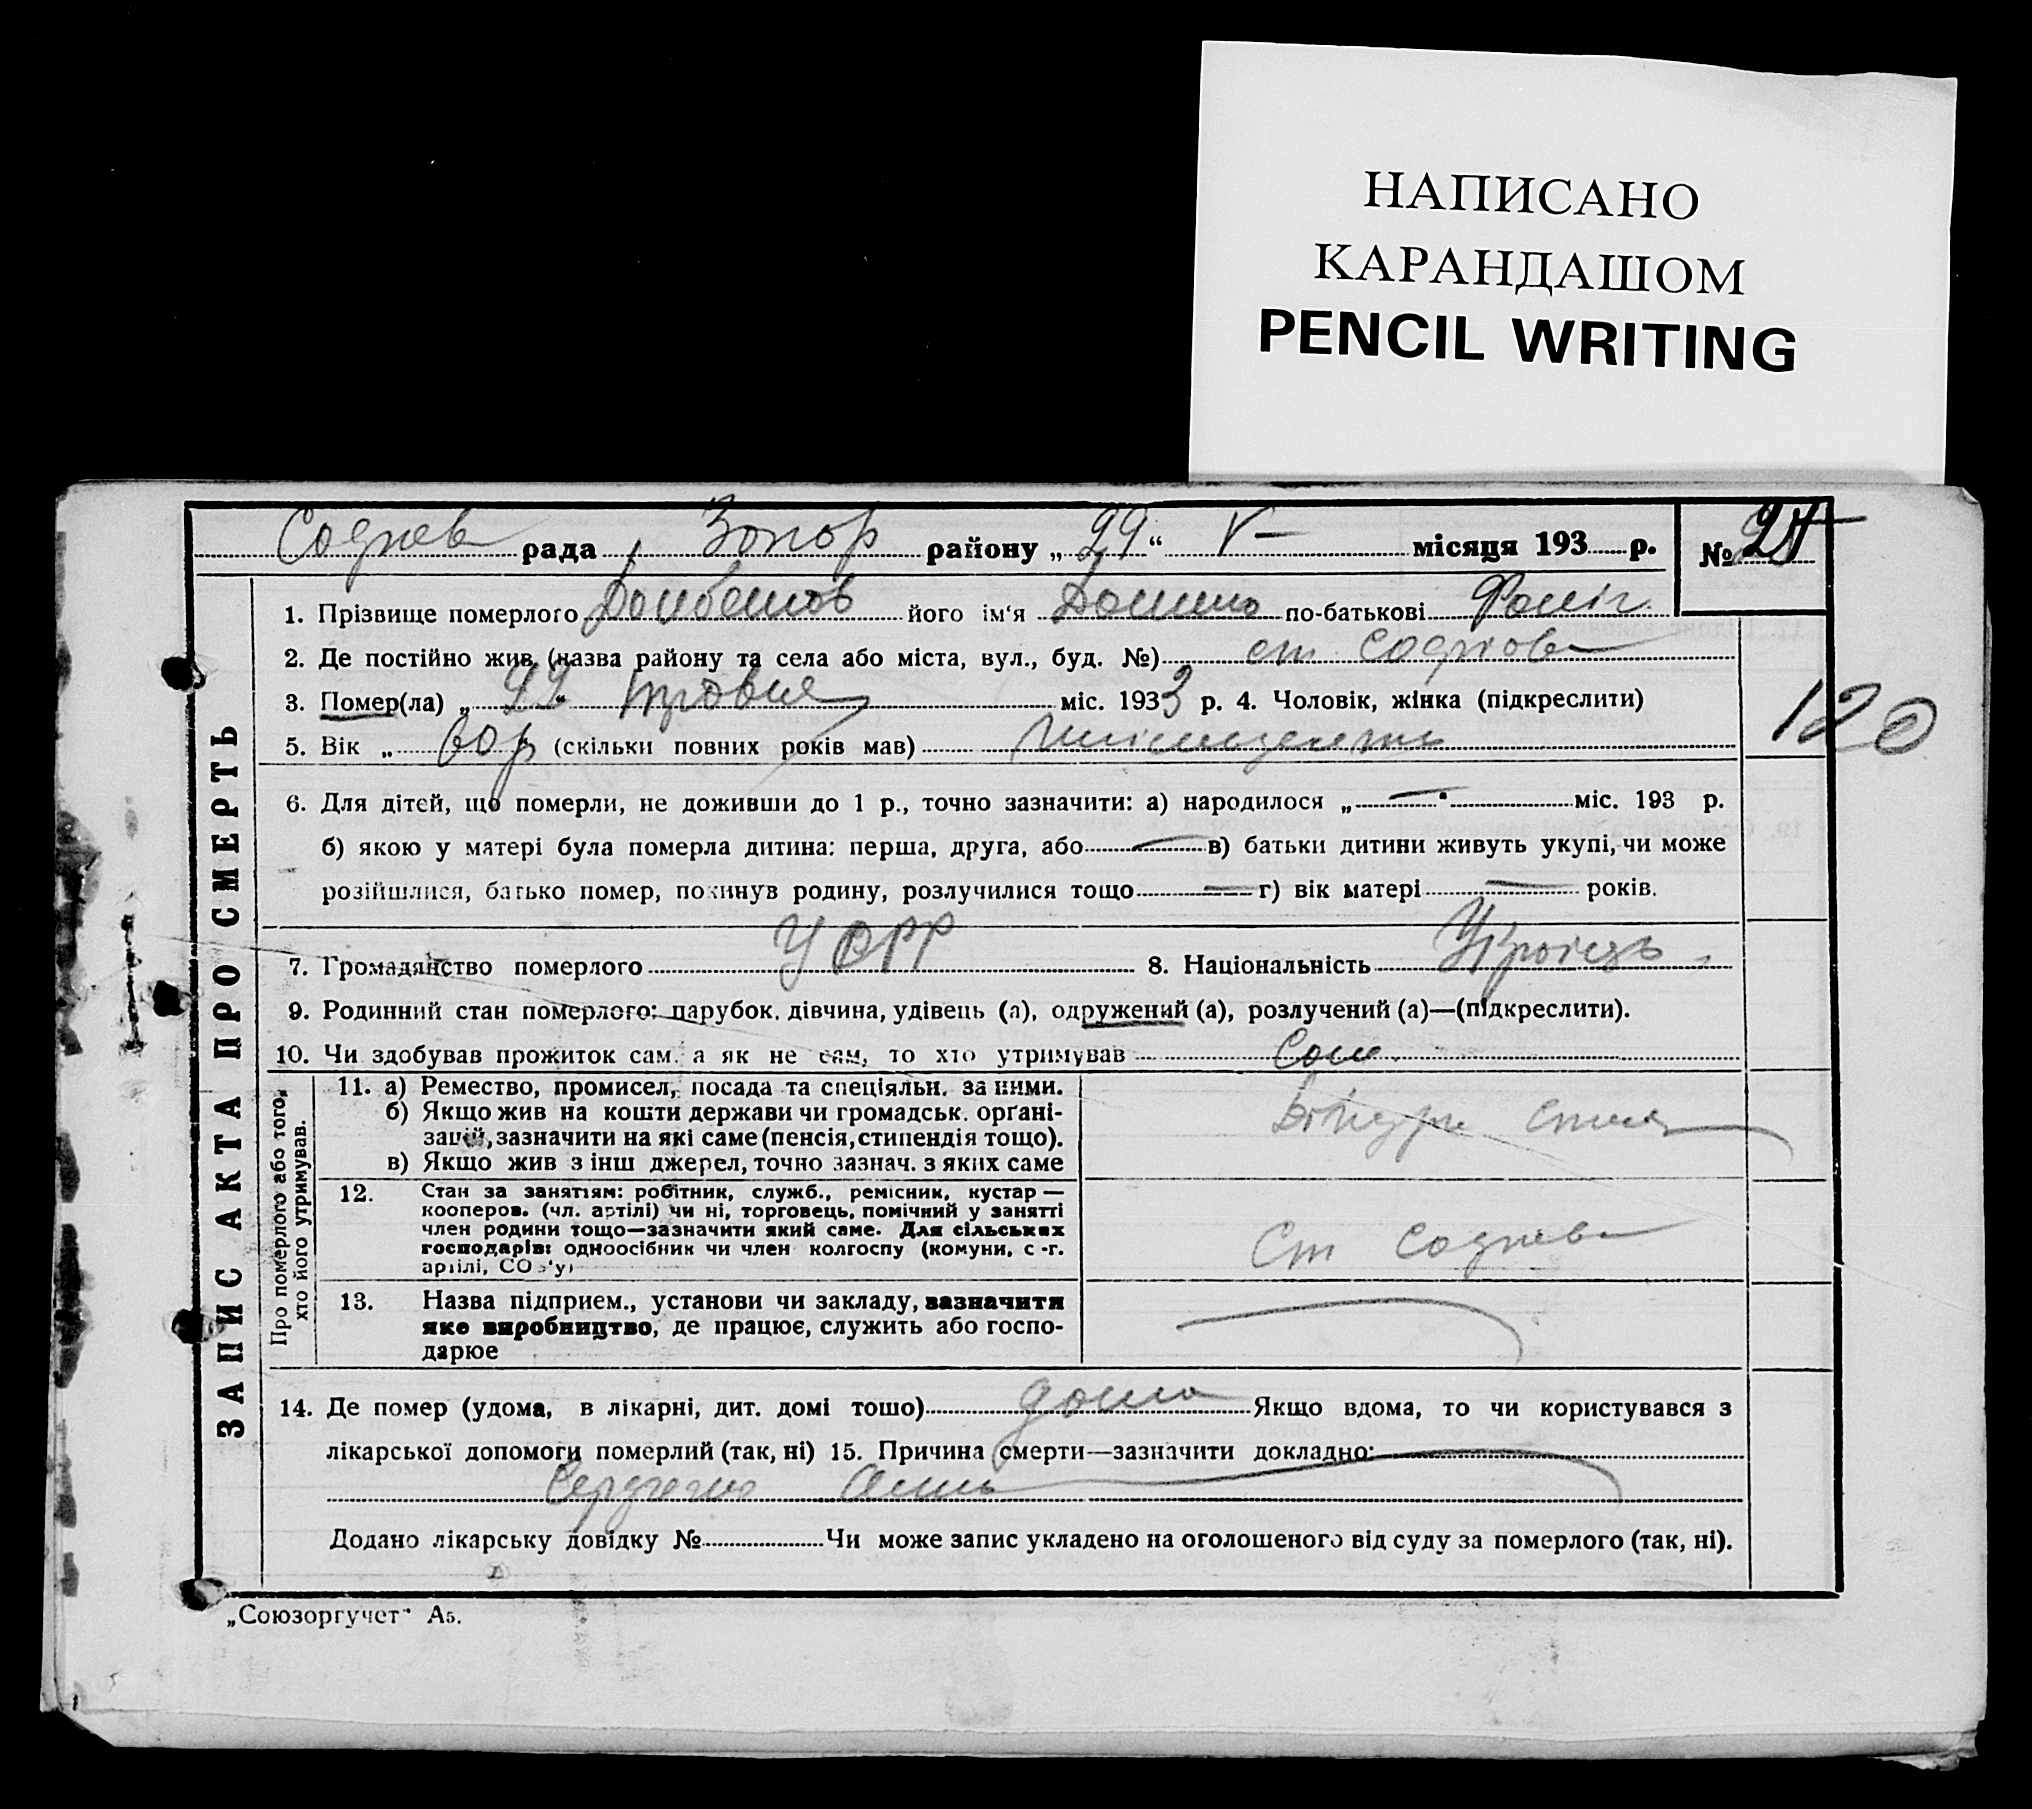 НАПИСАНО
КАРАНДАШОМ
PENCIL WRITING
рада Запор району „29“ V – місяця 193 р. №
1. Прізвище померлого його ім'я по-батькові
2. Де постійно жив (назва району та села або міста, вул., буд. №) ст
3. Помер(ла) „ міс. 1933 р. 4. Чоловік, жінка (підкреслити)
5. Вік „60 р“ (скільки повних років мав) шісдесять
120
6. Для дітей, що померли, не доживши до 1 р., точно зазначити: а) народилося „—“ міс. 193 р.
б) якою у матері була померла дитина: перша, друга, або — в) батьки дитини живуть укупі, чи може
розійшлися, батько помер, покинув родину, розлучилися тощо — г) вік матері — років.
7. Громадянство померлого УСРР 8. Національність Украінець
9. Родинний стан померлого: парубок, дівчина, удівець (а), одружений (а), розлучений (а)—(підкреслити).
10. Чи здобував прожиток сам, а як не сам, то хто утримував Сам
ЗАПИС АКТА ПРО СМЕРТЬ
Про померлого або того, хто його утримував.
11. а) Ремество, промисел, посада та спеціяльн. за ними.
б) Якщо жив на кошти держави чи громадськ. органі-
зацій, зазначити на які саме (пенсія, стипендія тощо).
в) Якщо жив з інш джерел, точно зазнач. з яких саме
12. Стан за заняттям: робітник, служб., ремісник, кустар —
кооперов. (чл. артілі) чи ні, торговець, помічний у занятті
член родини тощо—зазначити який саме. Для сільських
господарів: одноосібник чи член колгоспу (комуни, с.-г.
артілі, СОЗ'у)
Ст
13. Назва підприєм., установи чи закладу, зазначити
яке виробництво, де працює, служить або госпо-
дарює
14. Де помер (удома, в лікарні, дит. домі тощо) дома Якщо вдома, то чи користувався з
лікарської допомоги померлий (так, ні) 15. Причина смерти—зазначити докладно:
Додано лікарську довідку № Чи може запис укладено на оголошеного від суду за померлого (так, ні).
„Союзоргучет“ А5.